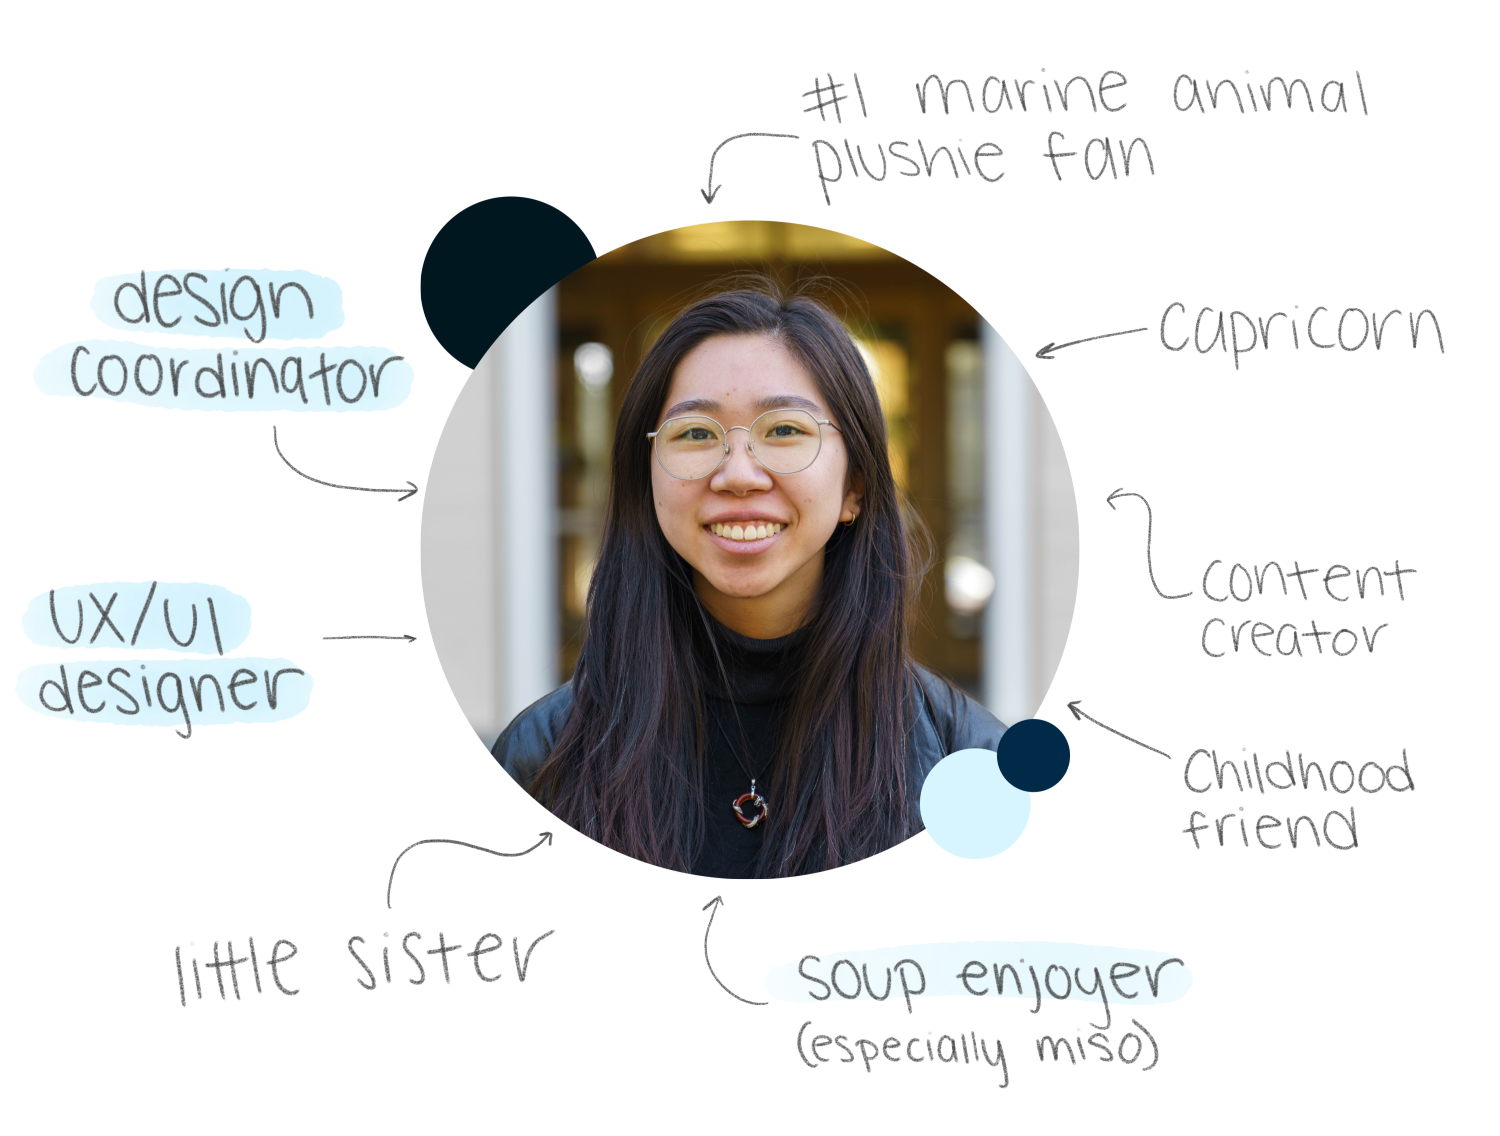 #1 marine animal
plushie fan
design
coordinator
capricorn
UX/UI
designer
content
creator
childhood
friend
little sister
soup enjoyer
(especially miso)